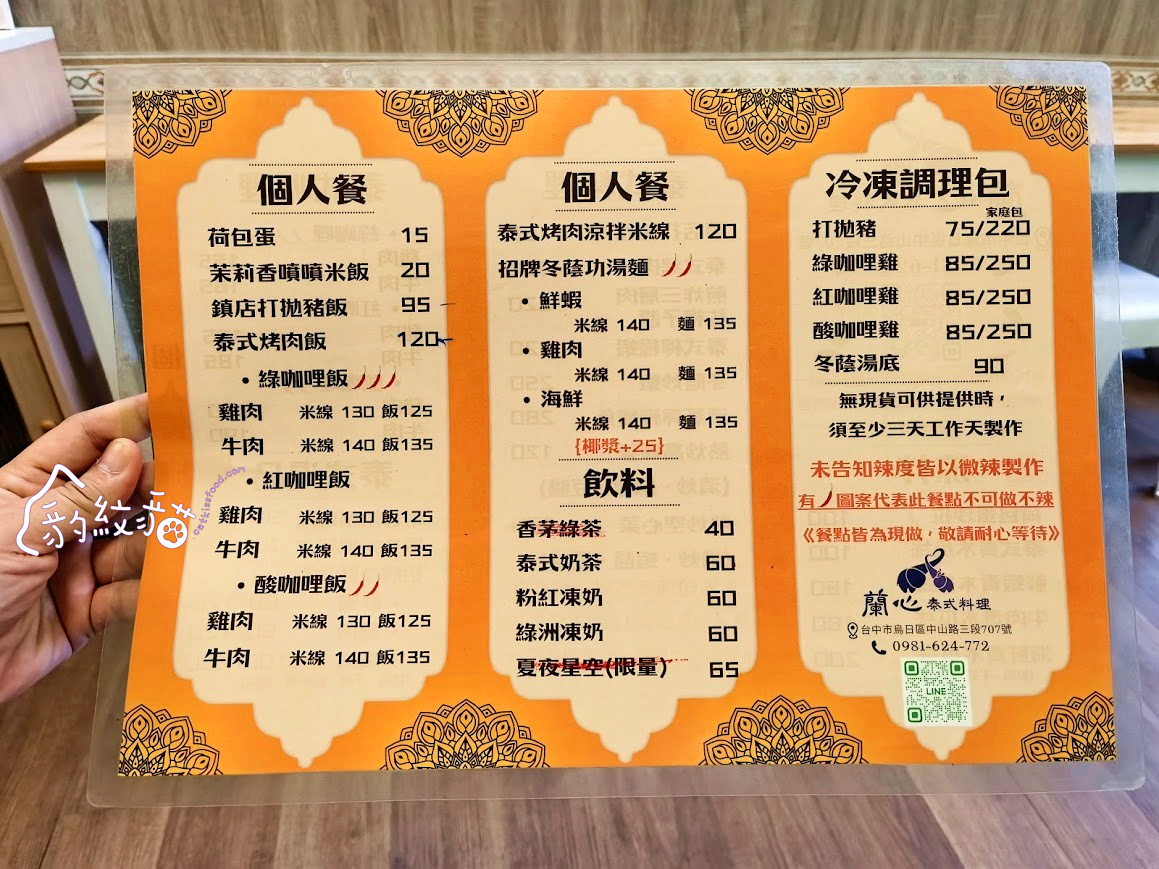 個人餐
荷包蛋 15
茉莉香噴噴米飯 20
鎮店打拋豬飯 95
泰式烤肉飯 120
• 綠咖哩飯
雞肉 米線 130 飯125
牛肉 米線 140 飯135
• 紅咖哩飯
雞肉 米線 130 飯125
牛肉 米線 140 飯135
• 酸咖哩飯
雞肉 米線 130 飯125
牛肉 米線 140 飯135
個人餐
泰式烤肉涼拌米線 120
招牌冬蔭功湯麵
• 鮮蝦
米線 140 麵 135
• 雞肉
米線 140 麵 135
• 海鮮
米線 140 麵 135
{椰漿+25}
飲料
香茅綠茶 40
泰式奶茶 60
粉紅凍奶 60
綠洲凍奶 60
夏夜星空(限量) 65
冷凍調理包
家庭包
打拋豬 75/220
綠咖哩雞 85/250
紅咖哩雞 85/250
酸咖哩雞 85/250
冬蔭湯底 90
無現貨可供提供時，
須至少三天工作天製作
未告知辣度皆以微辣製作
有 圖案代表此餐點不可做不辣
《餐點皆為現做，敬請耐心等待》
蘭心 泰式料理
台中市烏日區中山路三段707號
0981-624-772
LINE
豹紋貓
catkissfood.com